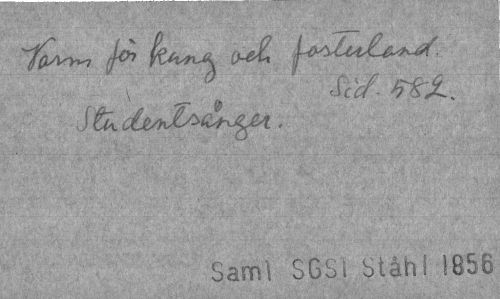 Varm för kung och fosterland.
Sid. 582.
Studentsånger.
Saml SGSl Ståhl 1856